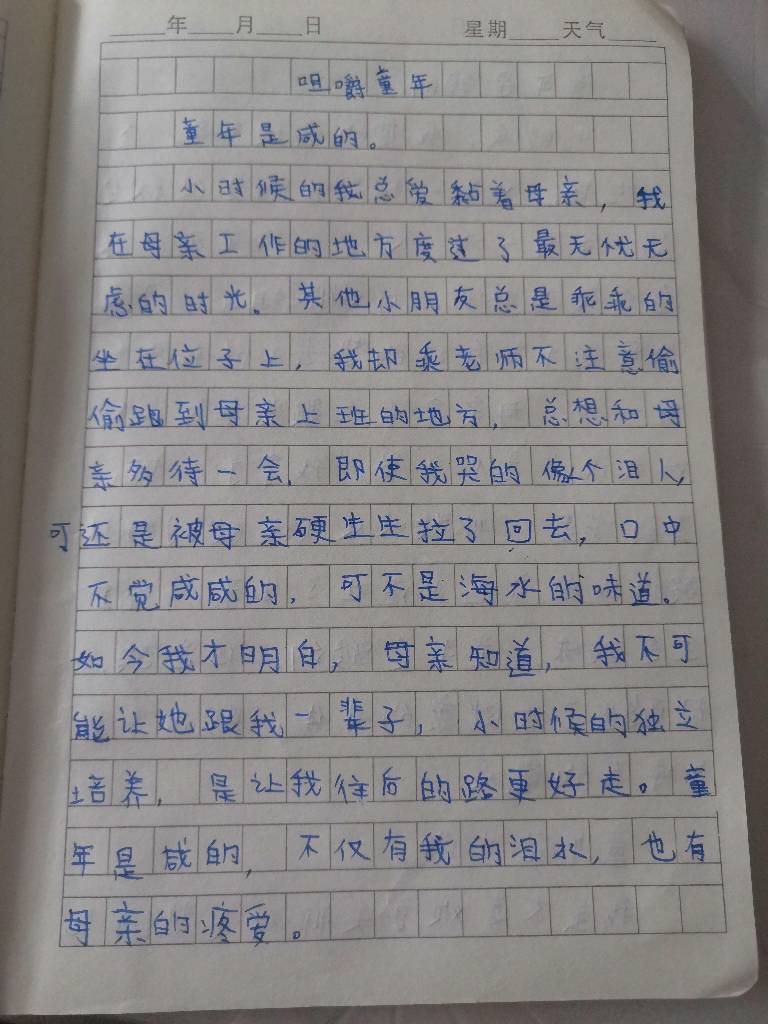 年 月 日 星期 天气
咀嚼童年
童年是咸的。
小时候的我总爱黏着母亲，我
在母亲工作的地方度过了最无忧无
虑的时光。其他小朋友总是乖乖的
坐在位子上，我却乘老师不注意偷
偷跑到母亲上班的地方，总想和母
亲多待一会，即使我哭的像个泪人，
可还是被母亲硬生生拉了回去，口中
不觉咸咸的，可不是海水的味道。
如今我才明白，母亲知道，我不可
能让她跟我一辈子，小时候的独立
培养，是让我往后的路更好走。童
年是咸的，不仅有我的泪水，也有
母亲的疼爱。